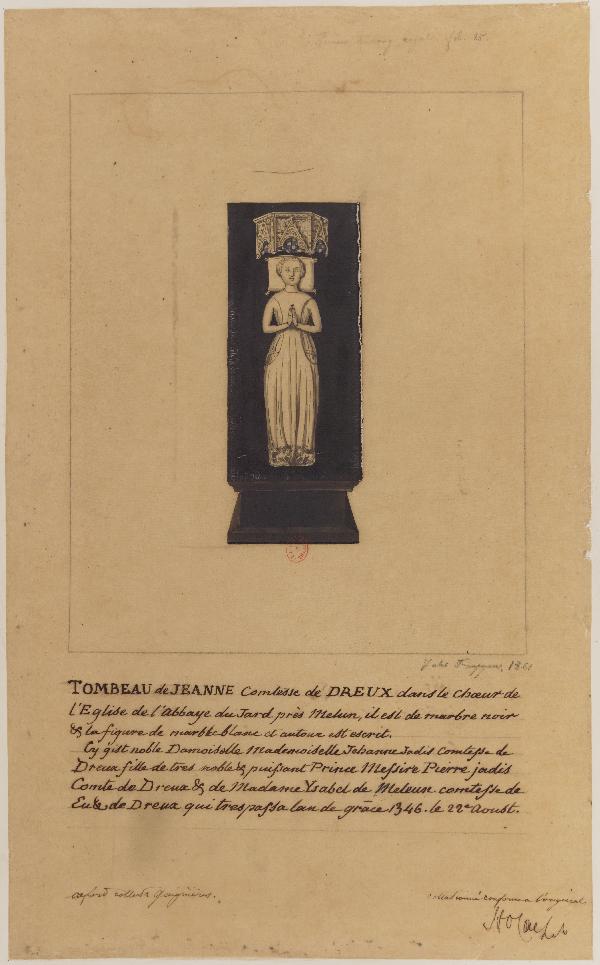 TOMBEAU de JEANNE Comtesse de DREUX dans le Chœur de
l'Eglise de l'Abbaye du Jard près Melun, il est de marbre noir
& la figure de marbre blanc et autour est escrit.
Cy gist noble Damoiselle Mademoiselle Jehanne Jadis Comtesse de
Dreux fille de tres noble & puissant Prince Messire Pierre jadis
Comte de Dreux & de Madame Ysabel de Meleun comtesse de
Eu & de Dreux qui trespassa lan de grâce 1346. le 22e Aoust.
oxford collect. Gaignières.
collationné conforme à l'original